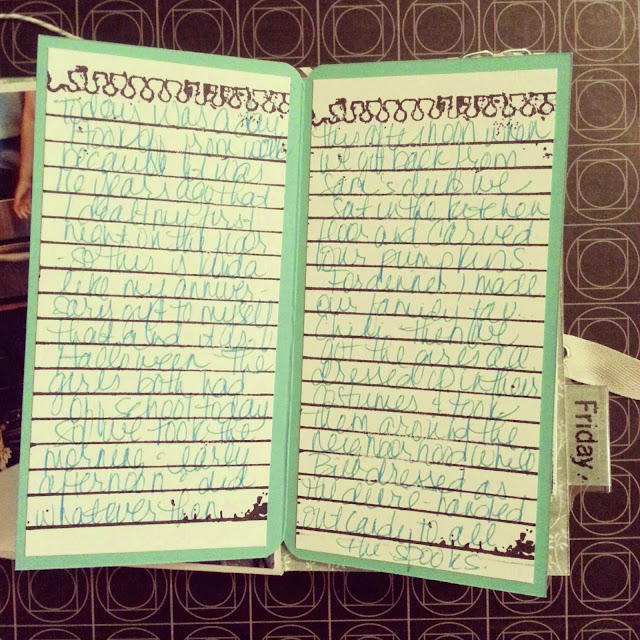 Today was a day
off for me from work
because it was
years ago that
I dealt my first
night on this
so this is kinda
like my anniver-
sary gift to myself
that and it's
Halloween. The
girls both had
no school today
so we took the
morning - early
afternoon and
whatever then
this afternoon when
we got back from
Sam's club we
sat in the kitchen
floor and carved
our pumpkins.
For dinner I made
our famous
chili. Then we
got the girls all
dressed up in their
costumes & I took
them around the
neighborhood while
Bill dressed as
handed
out candy to all
the spooks.
Friday